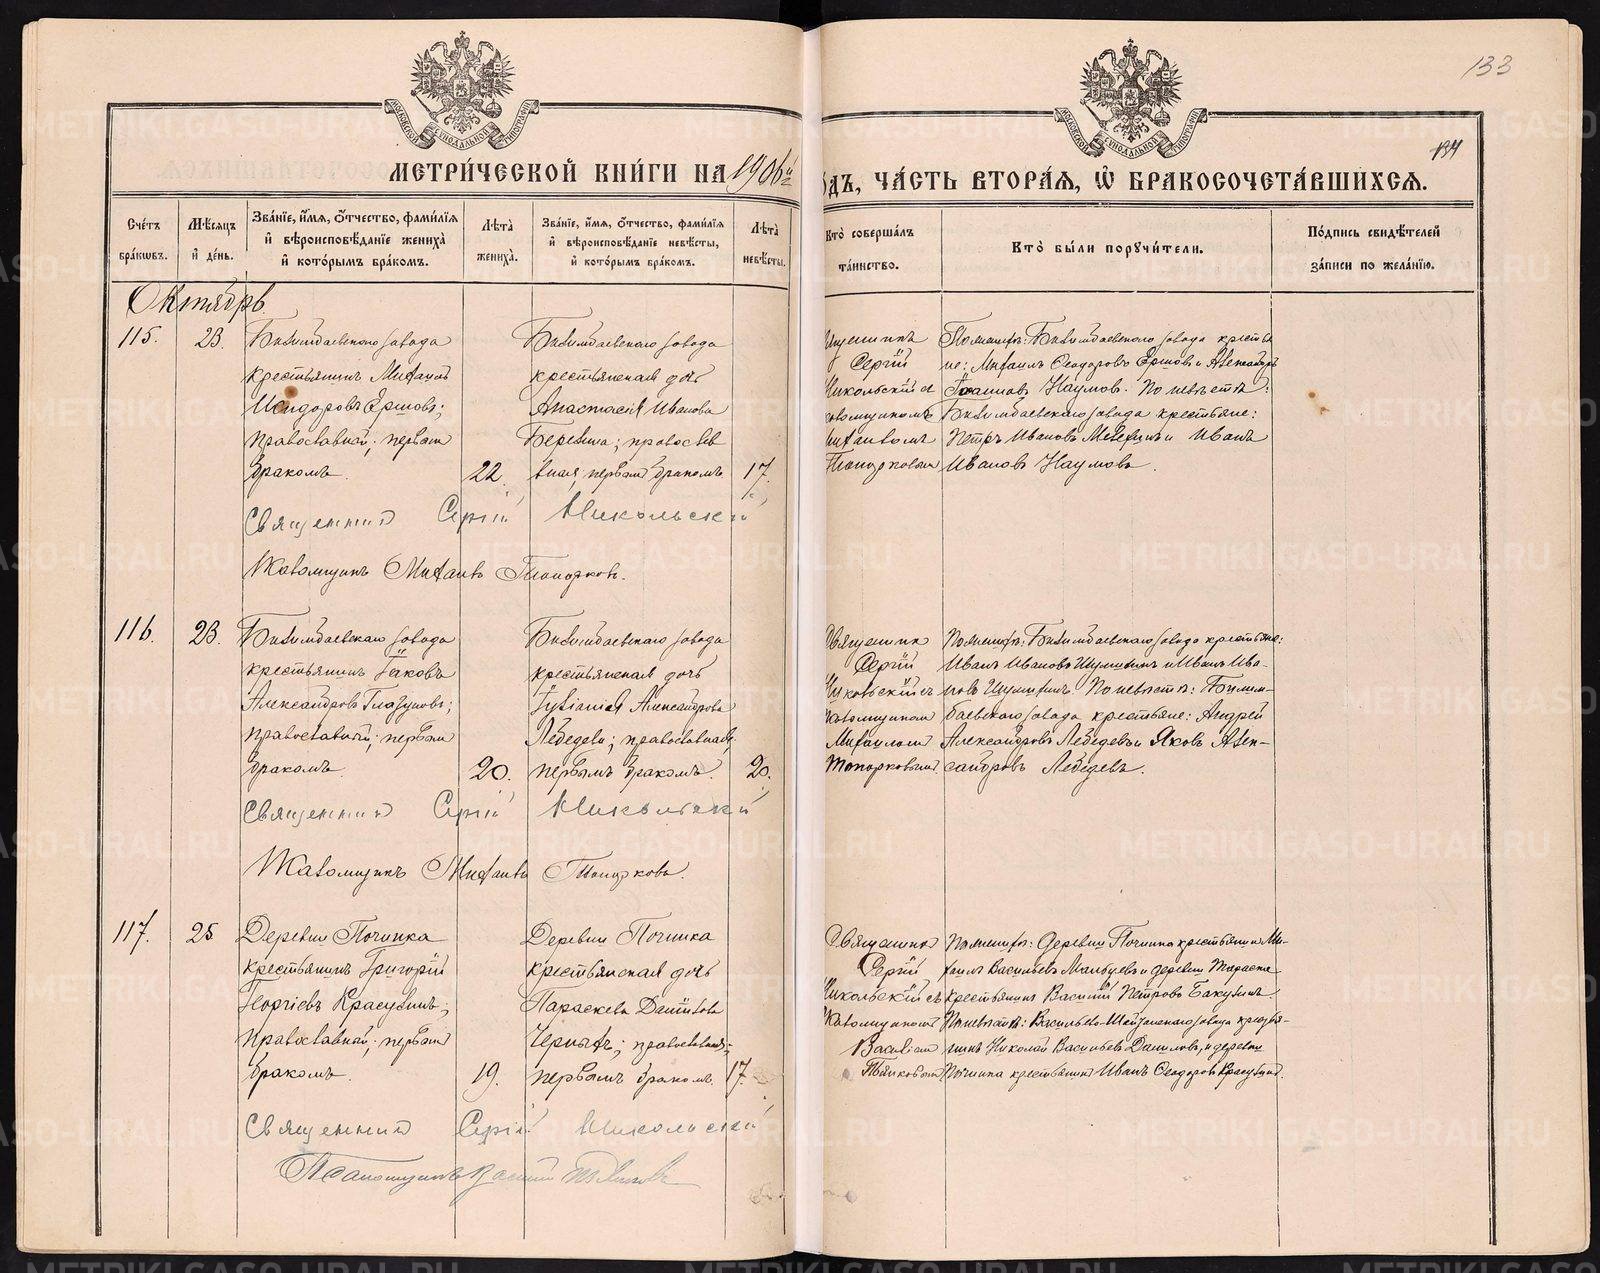 133
134
МОСКОВСКОЙ СѴНОДАЛЬНОЙ ТИПОГРАФІИ
МОСКОВСКОЙ СѴНОДАЛЬНОЙ ТИПОГРАФІИ
МЕТРИ́ЧЕСКОЙ КНИ́ГИ НА 1906й
ОДЪ, ЧА́СТЬ ВТОРА́Я, Ѡ БРАКОСОЧЕТА́ВШИХСЯ.
Сче́тъ бра́кѡвъ.
Мѣ́сяцъ и҆ де́нь.
Зва́нїе, и҆́мя, ѻ҆́тчество, фами́лїя и҆ вѣроисповѣ́данїе жениха̀ и҆ кото́рымъ бра́комъ.
Лѣ́та жениха̀.
Зва́нїе, и҆́мя, ѻ҆́тчество, фами́лїя и҆ вѣроисповѣ́данїе невѣ́сты, и҆ кото́рымъ бра́комъ.
Лѣ́та невѣ́сты.
Кто̀ соверша́лъ та́инство.
Кто̀ бы́ли порꙋчи́тели.
По́дпись свидѣ́телей за́писи по жела́нїю.
Октябрь.
115.
23.
Билимбаевскаго завода
крестьянинъ Михаилъ
Исидоровъ Ершовъ;
православный; первымъ
бракомъ.
22.
Билимбаевскаго завода
крестьянская дочь
Анастасія Иванова
православ
вная, первымъ бракомъ
17.
Сергій
Никольскій съ
Топорковымъ
По женихѣ: Билимбаевскаго завода крестья
не: Михаилъ Ѳеодоровъ Ершовъ и Александръ
Іоанновъ Наумовъ. По невѣстѣ:
Билимбаевскаго завода крестьяне:
Петръ Ивановъ и Иванъ
Ивановъ Наумовъ.
Священник Сергій Никольский
Псаломщикъ Михаилъ Топорковъ.
116.
23.
Билимбаевскаго завода
крестьянинъ Іаковъ
Александровъ Глазуновъ;
православный; первымъ
бракомъ.
20.
Билимбаевскаго завода
крестьянская дочь
Александрова
Лебедева; православная,
первымъ бракомъ.
20.
Священник
Сергій
Никольскій съ
псаломщикомъ
Михаиломъ
Топорковымъ.
По женихѣ: Билимбаевскаго завода крестьяне:
Иванъ Ивановъ и Иванъ Ива-
новъ По невѣстѣ: Билим-
баевскаго завода крестьяне: Андрей
Александровъ Лебедевъ и Яковъ Алек-
сандровъ Лебедевъ.
Священник Сергій Никольский
Псаломщикъ Михаилъ Топорковъ.
117.
25
Деревни Починка
крестьянинъ Григорій
Георгіевъ
православный; первымъ
бракомъ.
19.
Деревни Починка
крестьянская дочь
Параскева Даніилова
Черныхъ; православная;
первымъ бракомъ,
17.
Священник
Сергій
Никольскій съ
псаломщикомъ
Василіемъ
По женихѣ: деревни Починка крестьянинъ Ми-
хаилъ Васильевъ и деревни
крестьянинъ Василій Петровъ
По невѣстѣ: Васильево-Шайтанскаго завода крестья-
нинъ Николай Васильевъ Даниловъ, и деревни
Починка крестьянинъ Иванъ Ѳеодоровъ
Священник Сергій Никольский
Псаломщикъ Василій
METRIKI.GASO-URAL.RU